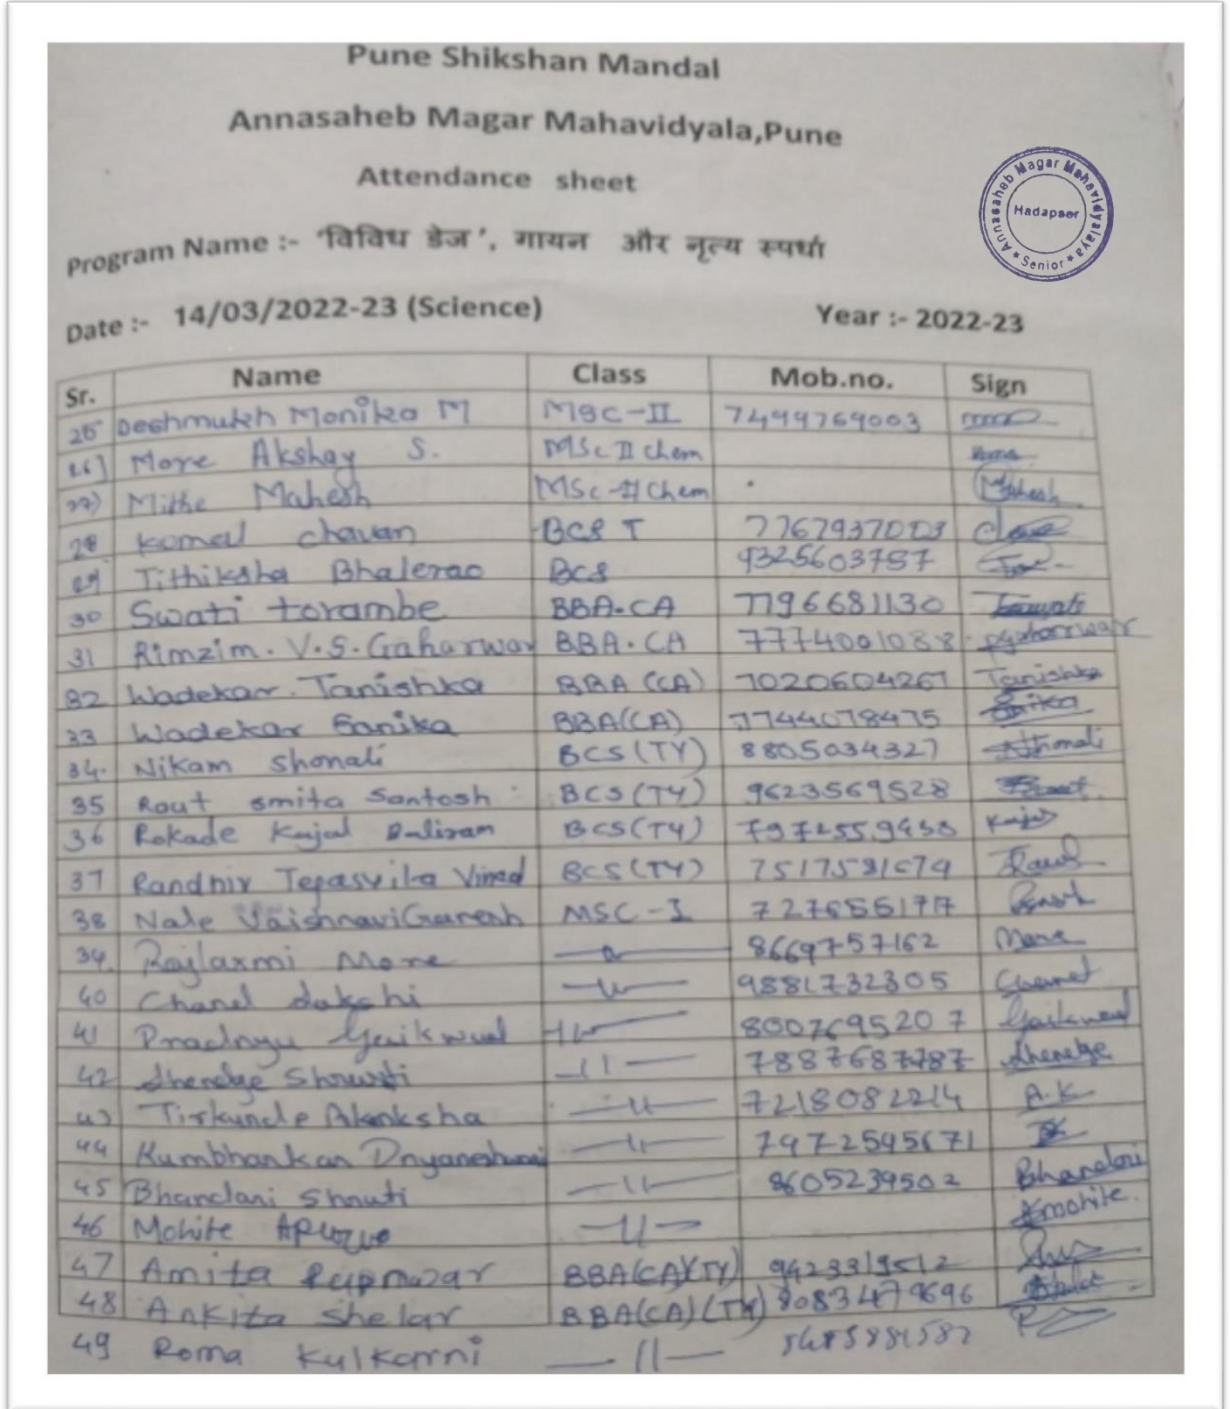 Pune Shikshan Mandal
Annasaheb Magar Mahavidyala,Pune
Attendance sheet
Annasaheb Magar Mahavidyalaya
Hadapsar
* Senior *
Program Name :- 'विविध डेज', गायन और नृत्य स्पर्धा
Date :- 14/03/2022-23 (Science)
Year :- 2022-23
Sr. Name Class Mob.no. Sign
25 Deshmukh Monika M MSC-II 7499769003
26) More Akshay S. MSc II chem
27) Mithe Mahesh MSc-II Chem Mahesh
28 Komal chavan BCS T
29 Tithiksha Bhalerao BCS 9325603757
30 Swati torambe BBA.CA 7796681130
31 Rimzim. V.S. Gaharwar BBA.CA 7774001088 Gaharwar
32 Wadekar. Tanishka BBA (CA) 7020604267 Tanishka
33 Wadekar Sanika BBA(CA) 7744078475
34. Nikam Shonali BCS (TY) 8805034327 Shonali
35 Rout smita Santosh BCS (TY) 9623569528
36 Rokade Kajal Baliram BCS (TY) Kajal
37 Randhir Tejasvika Vinod BCS (TY)
38 Nale Vaishnavi Ganesh MSC-I
39. Rajlaxmi More 8669757162 More
40 Chanel dakshi —11— 9881732305
41 Pradnya Gaikwad —11— 8007695207 Gaikwad
42 Shendge Shruti —11— 7887687787 Shendge
43 Tirkunde Akanksha —11— 7218082214 A.K
44 Kumbharkar Dnyaneshwari —11— 7972595671
45 Bhandari Shruti —11— 8605239502 Bhandari
46 Mohite —11— Amohite.
47 Amita BBA(CA)(TY)
48 Ankita Shelar BBA(CA)(TY) 9083479696
49 Roma Kulkarni —11—